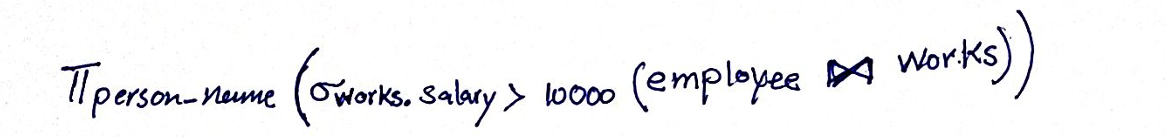 Πperson-name (σworks.salary > 10000 (employee ⋈ works))